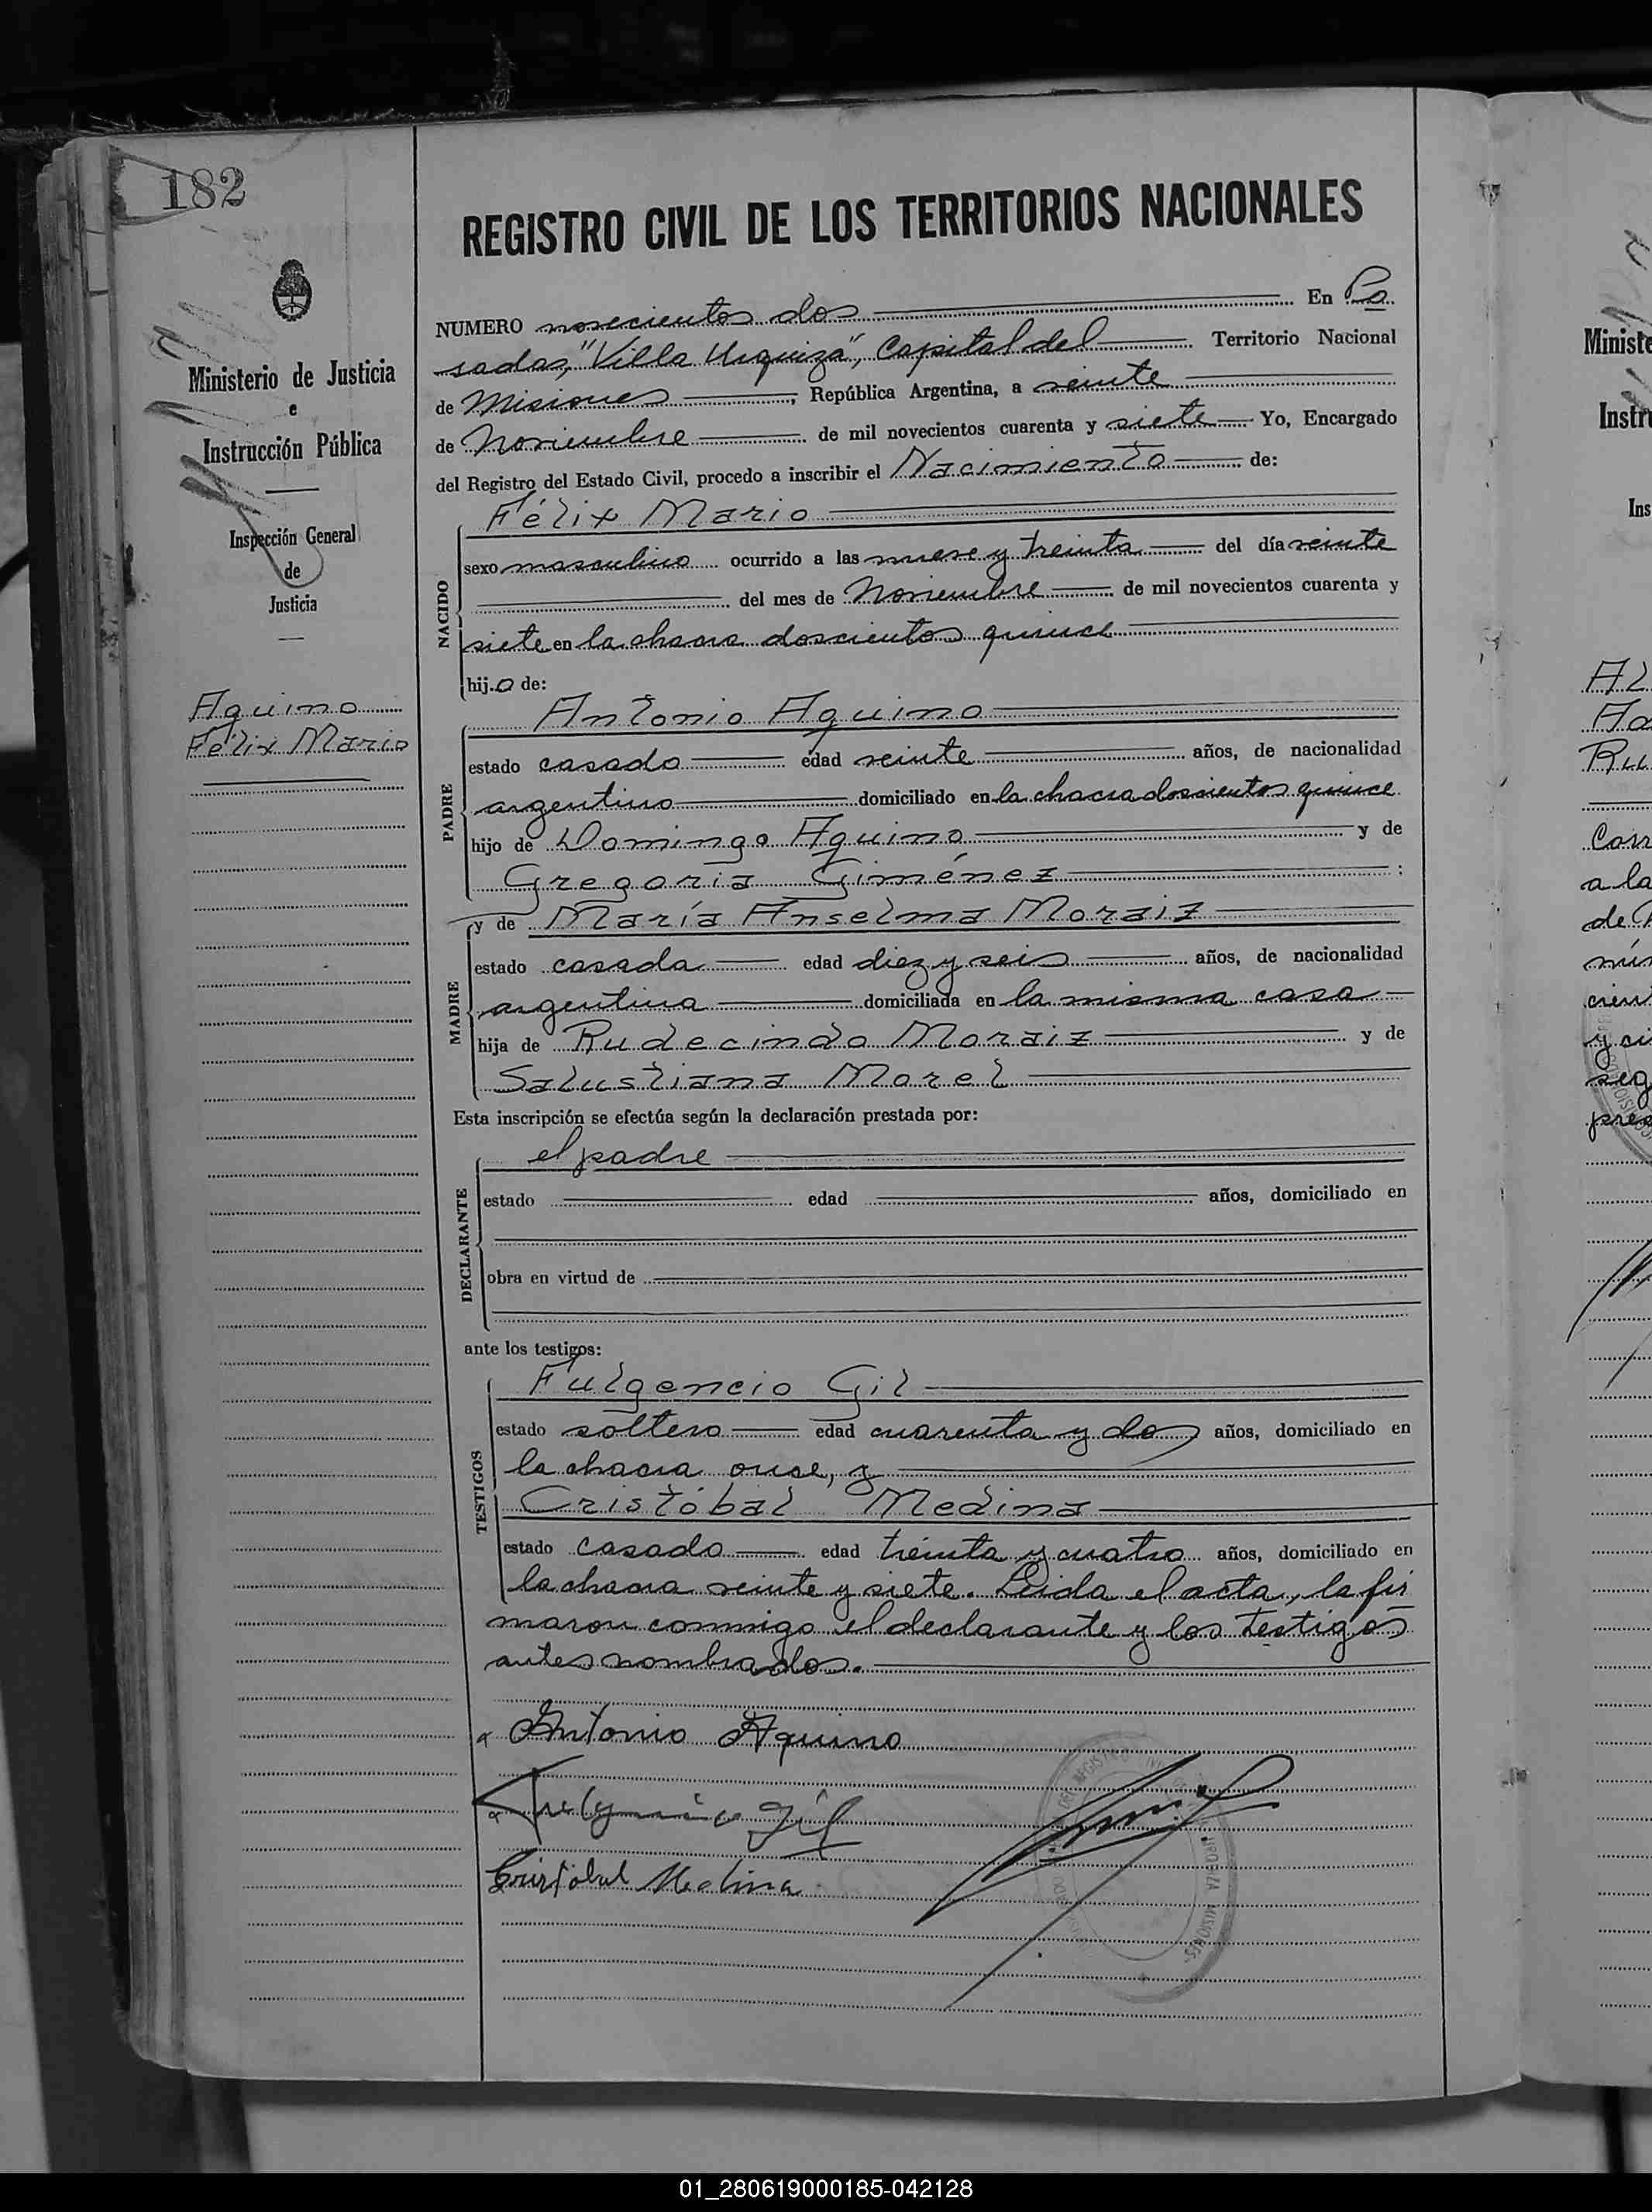 182
REGISTRO CIVIL DE LOS TERRITORIOS NACIONALES
NUMERO novecientos dos En Po
sadas, "Villa Urquiza", Capital del Territorio Nacional
de Misiones, República Argentina, a veinte
de Noviembre de mil novecientos cuarenta y siete Yo, Encargado
del Registro del Estado Civil, procedo a inscribir el Nacimiento de:
Ministerio de Justicia
e
Instrucción Pública
Inspección General
de
Justicia
Aquino
Félix Mario
NACIDO
Félix Mario
sexo masculino ocurrido a las nueve y treinta del día veinte
del mes de Noviembre de mil novecientos cuarenta y
siete en la chacra doscientos quince
hijo de:
PADRE
Antonio Aquino
estado casado edad veinte años, de nacionalidad
argentino domiciliado en la chacra doscientos quince
hijo de Domingo Aquino y de
Gregoria Giménez ;
MADRE
y de María Anselma Moraiz
estado casada edad diez y seis años, de nacionalidad
argentina domiciliada en la misma casa
hija de Rudecindo Moraiz y de
Salustiana Morel
Esta inscripción se efectúa según la declaración prestada por:
DECLARANTE
el padre
estado edad años, domiciliado en
obra en virtud de
ante los testigos:
TESTIGOS
Fulgencio Gil
estado soltero edad cuarenta y dos años, domiciliado en
la chacra onse, y
Cristóbal Medina
estado casado edad treinta y cuatro años, domiciliado en
la chacra veinte y siete. Leida el acta, la fir
maron conmigo el declarante y los testigos
antes nombrados.
Antonio Aquino
Fulgencio Gil
Cristobal Medina
URQUIZA MISIONES
Ministe
Instru
Ins
AL
Ru
Corr
a la
de
cient
y ci
seg
pres
01_280619000185-042128